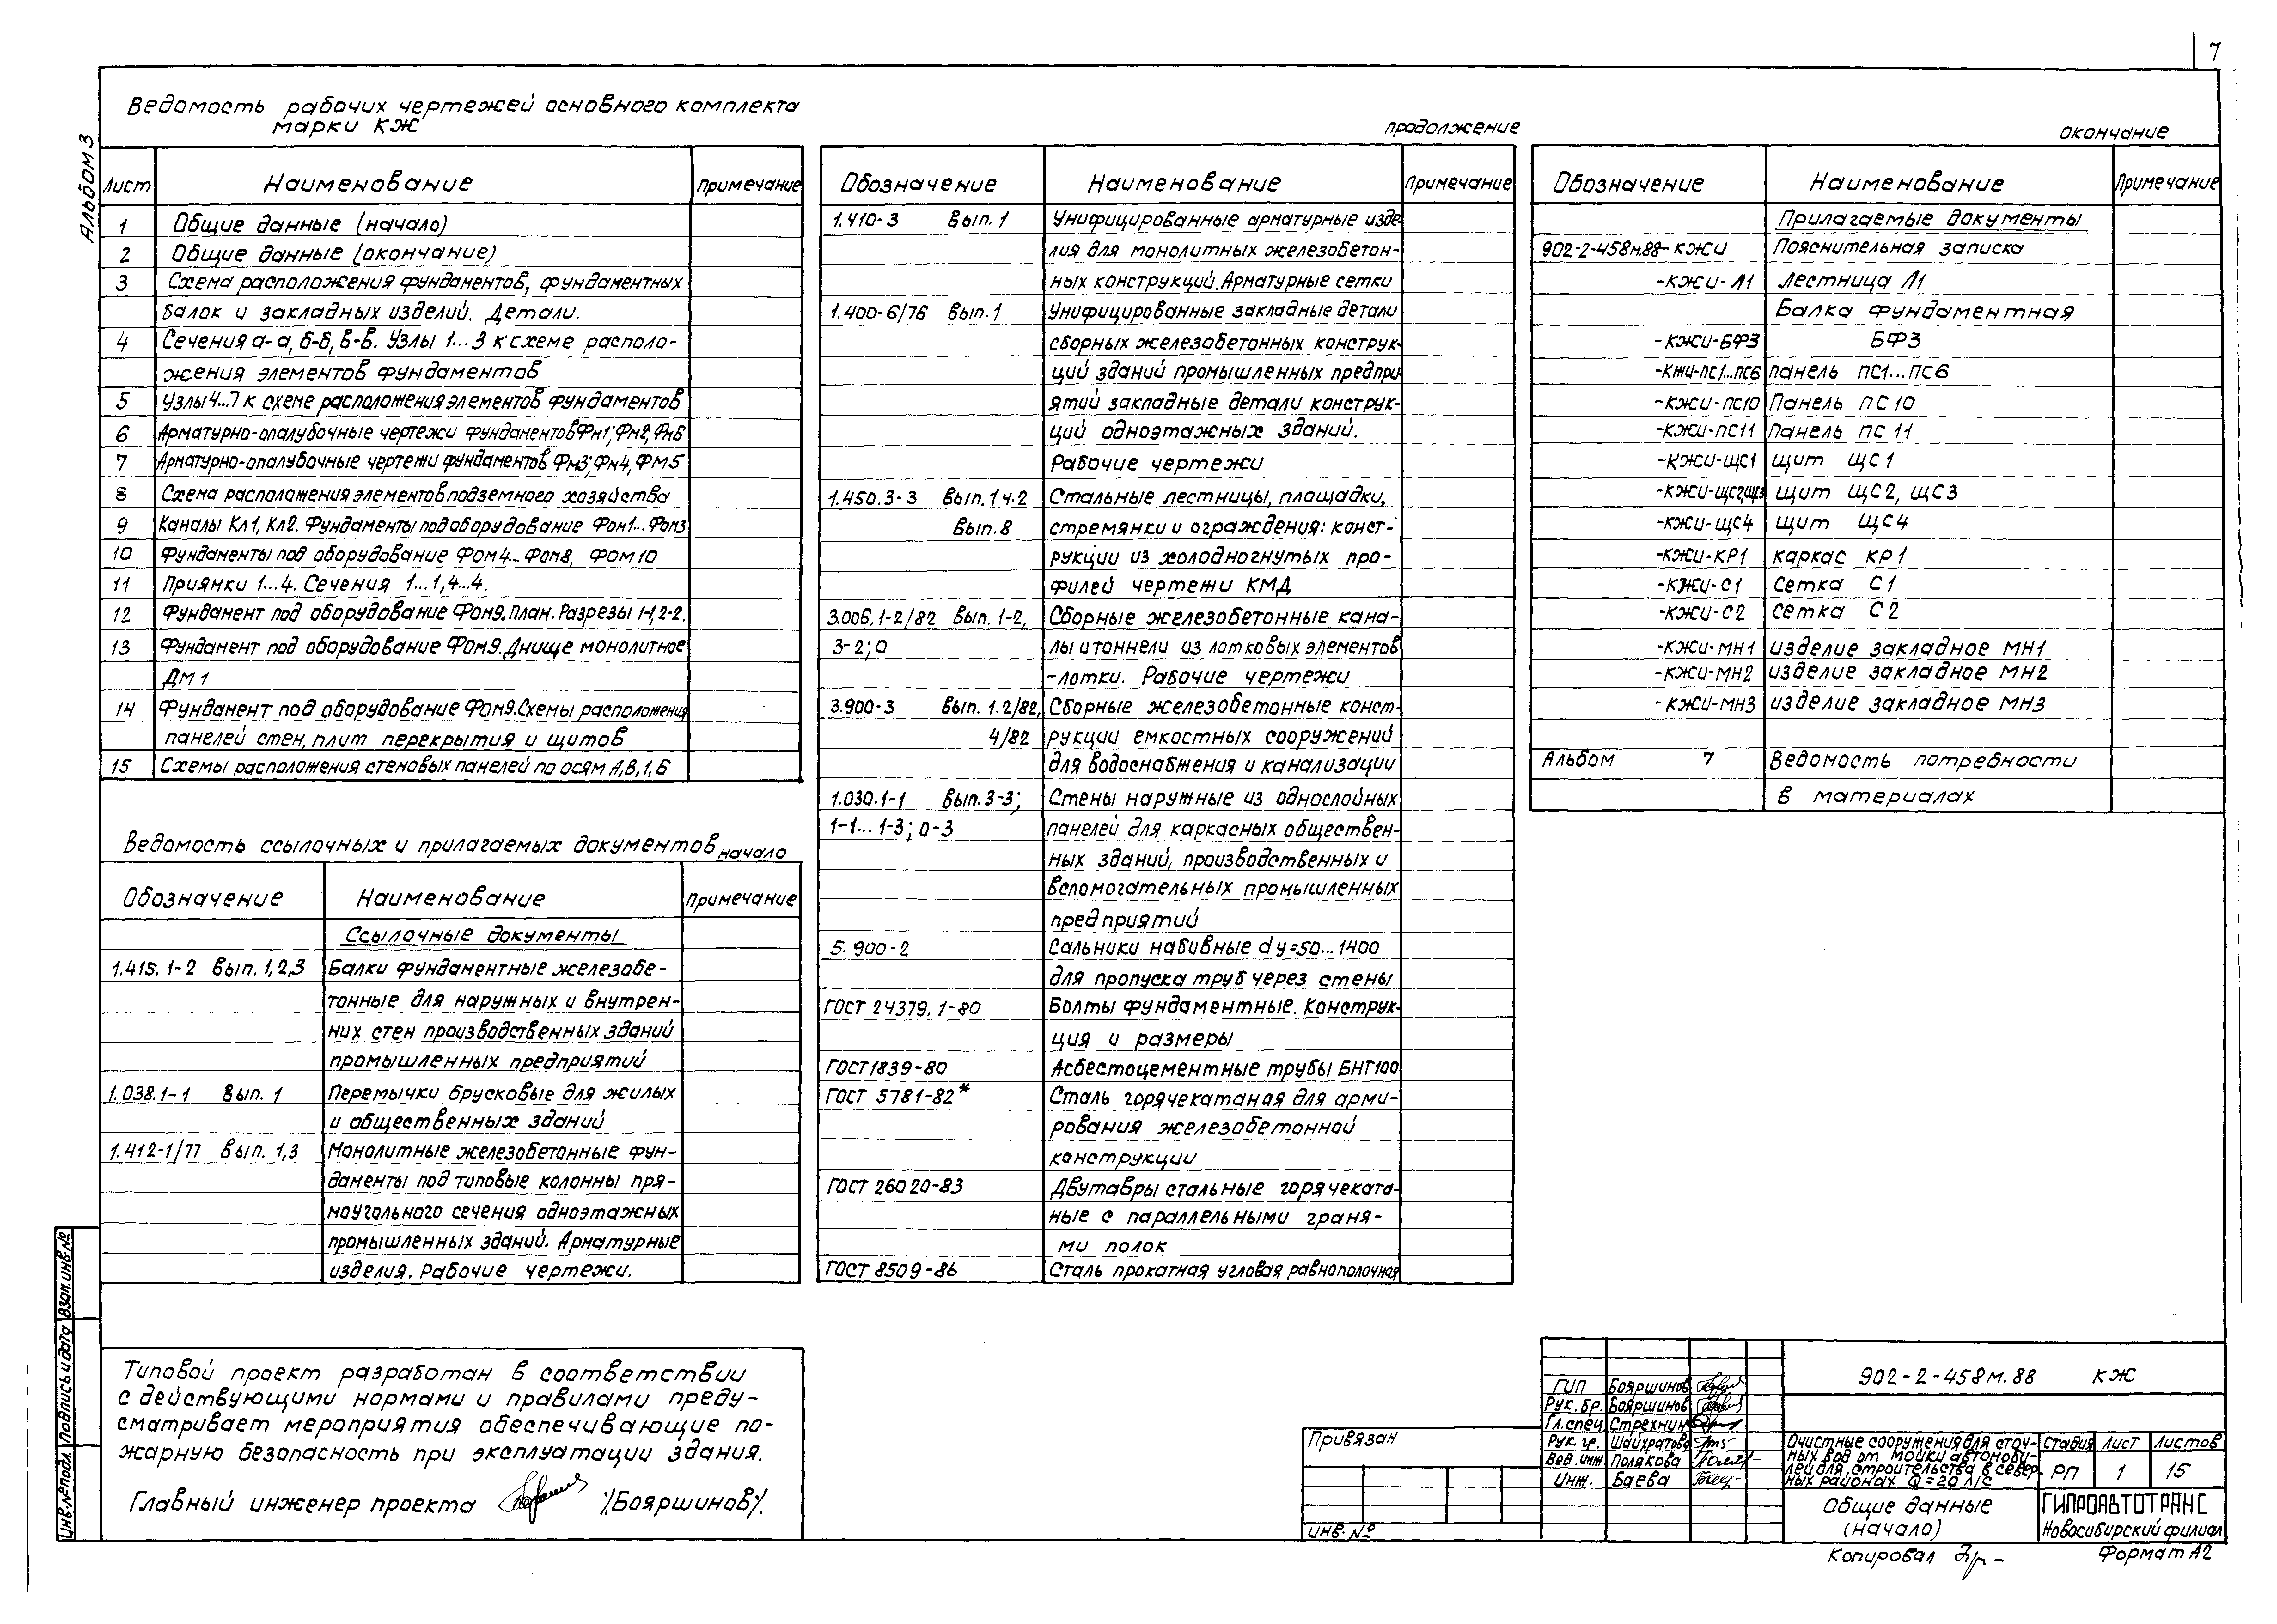 7
Альбом 3
Ведомость рабочих чертежей основного комплекта
марки КЖ
Лист Наименование Примечание
1 Общие данные (начало)
2 Общие данные (окончание)
3 Схема расположения фундаментов, фундаментных
балок и закладных изделий. Детали.
4 Сечения а-а, б-б, в-в. Узлы 1...3 к схеме располо-
жения элементов фундаментов
5 Узлы 4...7 к схеме расположения элементов фундаментов
6 Арматурно-опалубочные чертежи фундаментов Фм1; Фм2, Фм6
7 Арматурно-опалубочные чертежи фундаментов Фм3; Фм4, ФМ5
8 Схема расположения элементов подземного хозяйства
9 Каналы Кл1, Кл2. Фундаменты под оборудование Фом1... Фом3
10 Фундаменты под оборудование Фом4... Фом8, Фом10
11 Приямки 1...4. Сечения 1...1, 4...4.
12 Фундамент под оборудование Фом9. План. Разрезы 1-1, 2-2.
13 Фундамент под оборудование Фом9. Днище монолитное
ДМ1
14 Фундамент под оборудование Фом9. Схемы расположения
панелей стен, плит перекрытия и щитов
15 Схемы расположения стеновых панелей по осям А, В, 1, 6
Ведомость ссылочных и прилагаемых документов начало
Обозначение Наименование Примечание
Ссылочные документы
1.415.1-2 Вып. 1,2,3 Балки фундаментные железобе-
тонные для наружных и внутрен-
них стен производственных зданий
промышленных предприятий
1.038.1-1 Вып. 1 Перемычки брусковые для жилых
и общественных зданий
1.412-1/77 Вып. 1,3 Монолитные железобетонные фун-
даменты под типовые колонны пря-
моугольного сечения одноэтажных
промышленных зданий. Арматурные
изделия. Рабочие чертежи.
продолжение
Обозначение Наименование Примечание
1.410-3 Вып. 1 Унифицированные арматурные изде
лия для монолитных железобетон-
ных конструкций. Арматурные сетки
1.400-6/76 Вып. 1 Унифицированные закладные детали
сборных железобетонных конструк-
ций зданий промышленных предпри
ятий закладные детали конструк-
ций одноэтажных зданий.
Рабочие чертежи
1.450.3-3 Вып. 1 ч. 2 Стальные лестницы, площадки,
Вып. 8 стремянки и ограждения: конст-
рукции из холодногнутых про-
филей чертежи КМД
3.006.1-2/82 Вып. 1-2, Сборные железобетонные кана-
3-2; 0 лы и тоннели из лотковых элементов
-лотки. Рабочие чертежи
3.900-3 Вып. 1.2/82, Сборные железобетонные конст-
4/82 рукции емкостных сооружений
для водоснабжения и канализации
1.030.1-1 Вып. 3-3; Стены наружные из однослойных
1-1... 1-3; 0-3 панелей для каркасных обществен-
ных зданий, производственных и
вспомогательных промышленных
предприятий
5.900-2 Сальники набивные dу=50...1400
для пропуска труб через стены
ГОСТ 24379.1-80 Болты фундаментные. Конструк-
ция и размеры
ГОСТ 1839-80 Асбестоцементные трубы БНТ100
ГОСТ 5781-82* Сталь горячекатаная для арми-
рования железобетонной
конструкции
ГОСТ 26020-83 Двутавры стальные горячеката-
ные с параллельными граня-
ми полок
ГОСТ 8509-86 Сталь прокатная угловая равнополочная
окончание
Обозначение Наименование Примечание
Прилагаемые документы
902-2-458м.88-КЖИ Пояснительная записка
-КЖИ-Л1 Лестница Л1
Балка фундаментная
-КЖИ-БФ3 БФ3
-КЖИ-ПС1...ПС6 панель ПС1...ПС6
-КЖИ-ПС10 Панель ПС10
-КЖИ-ПС11 Панель ПС 11
-КЖИ-ЩС1 щит ЩС1
-КЖИ-ЩС2,ЩС3 щит ЩС2, ЩС3
-КЖИ-ЩС4 щит ЩС4
-КЖИ-КР1 каркас КР1
-КЖИ-С1 Сетка С1
-КЖИ-С2 сетка С2
-КЖИ-МН1 изделие закладное МН1
-КЖИ-МН2 изделие закладное МН2
-КЖИ-МН3 изделие закладное МН3
Альбом 7 Ведомость потребности
в материалах
Типовой проект разработан в соответствии
с действующими нормами и правилами преду-
сматривает мероприятия обеспечивающие по-
жарную безопасность при эксплуатации здания.
Главный инженер проекта /Бояршинов/.
Инв.№подл. Подпись и дата Взам.инв.№
Привязан
инв. №
ГИП Бояршинов
Рук. бр. Бояршинов
Гл.спец. Стрехнин
Рук. гр. Шайхратова
Вед.инж. Полякова
Инж. Баева
902-2-458м.88 КЖ
Очистные сооружения для сточ-
ных вод от мойки автомоби-
лей для строительства в север-
ных районах Q=20 л/с
Стадия Лист Листов
РП 1 15
Общие данные
(начало)
ГИПРОАВТОТРАНС
Новосибирский филиал
Копировал
Формат А2